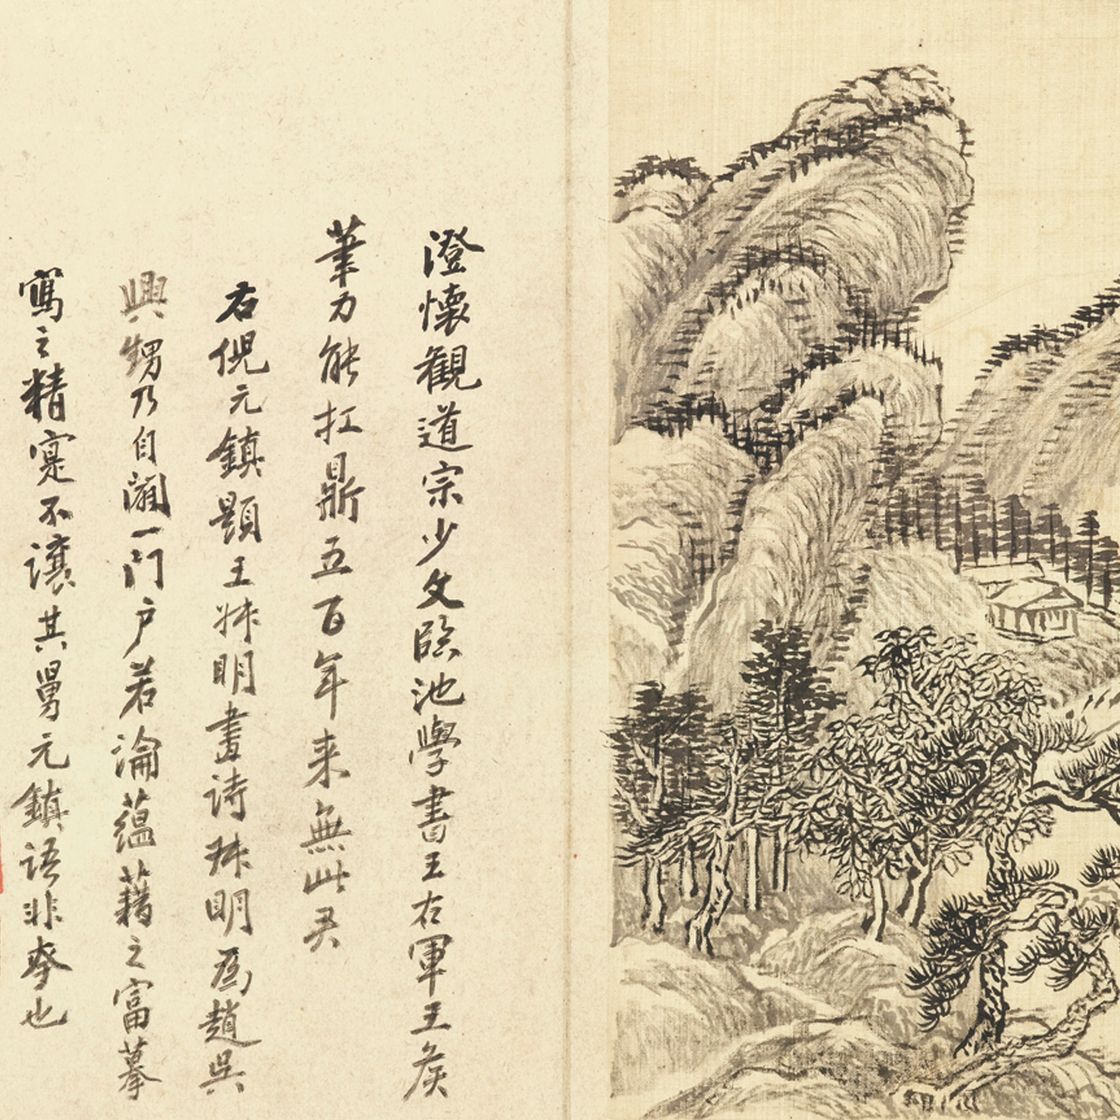 澄懷觀道宗少文臨池學書王右軍王侯
筆力能扛鼎五百年來無此君
右倪元鎮題王叔明畫詩叔明為趙吳
興甥乃自闢一門戶若論蘊藉之富摹
寫之精寔不讓其舅元鎮語非夸也